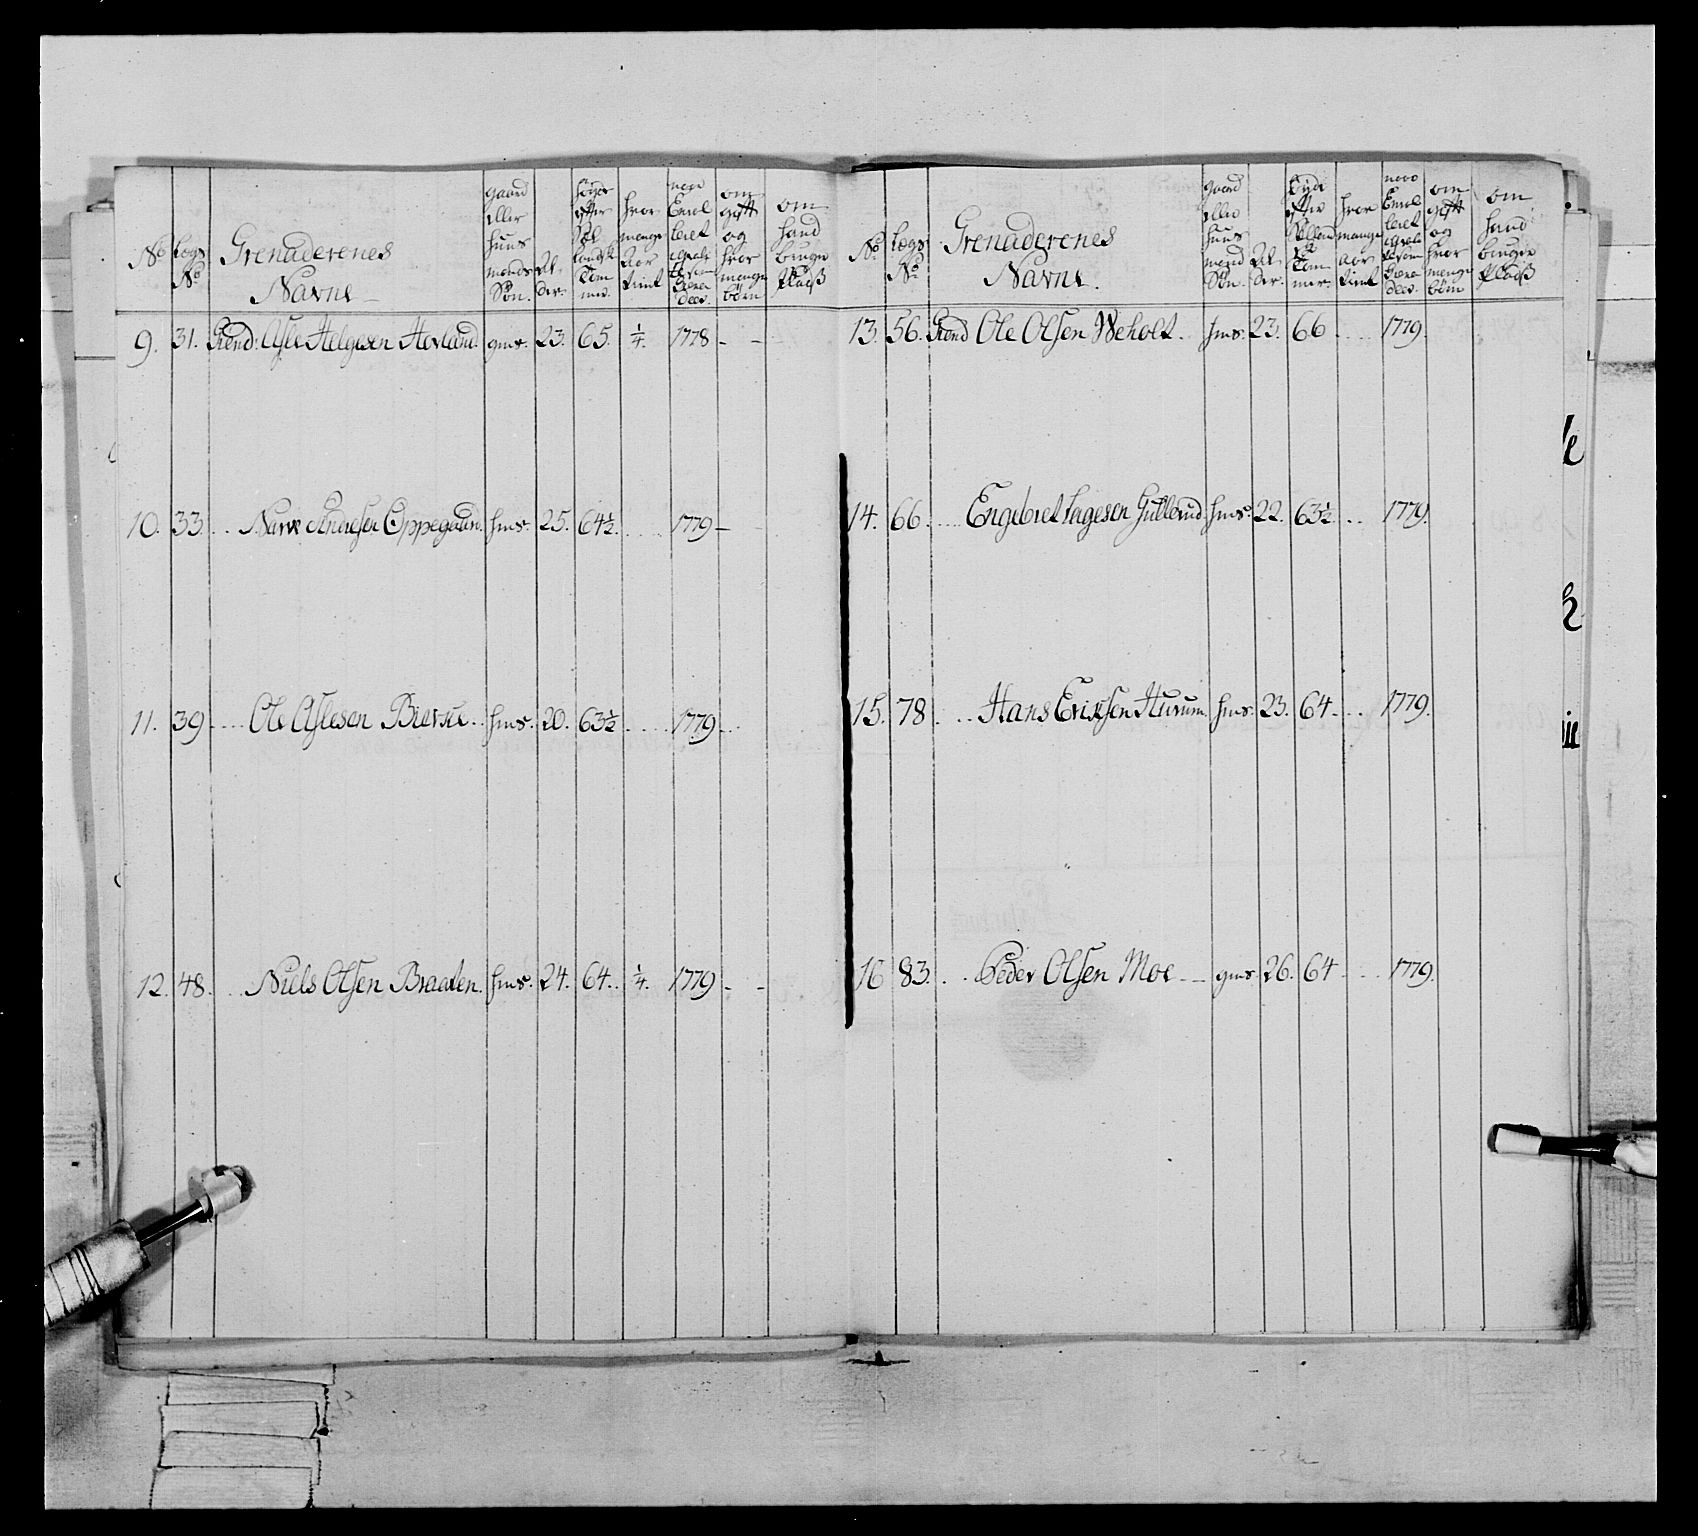 No Lægs No Grenaderenes Navne gaard eller huus mands Søn. Al- der. høyde efter Sel- landsk Tom mer. hvor mange Aar tient naar Enrol- leret om gift og hvor mange børn om hand bruger Pladß
9. 31. Grend: Asle Helgesen Hovland. gms. 23. 65. 1/4. 1778 - -
10. 33. .. Narve Andersen Oppegaard. hms. 25. 64 1/2. .... 1779 -
11. 39 .... Ole Aslesen Biersue.. hms. 20. 63 1/2 .... 1779 ..
12. 48. .. Niels Olsen Braaten. hms. 24. 64. 1/4. 1779 - -
No Lægs No Grenaderenes Navne. gaard eller huus mand Søn. Al- der. høyde efter Tom mer. hvor mange aar tient naar Enrol leret om gift og hvor mange børn om hand bruger Pladß
13. 56. Grend Ole Olsen Weholt. hms. 23. 66 .... 1779.
14. 66. .... Engebret Hagesen Gulterud hms. 22. 63 1/2. .. 1779.
15. 78 . .. Hans Eriksen Hurum. hms. 23. 64. .. 1779.
16 83. .. Peder Olsen Moe -- gms. 26. 64 ... 1779.